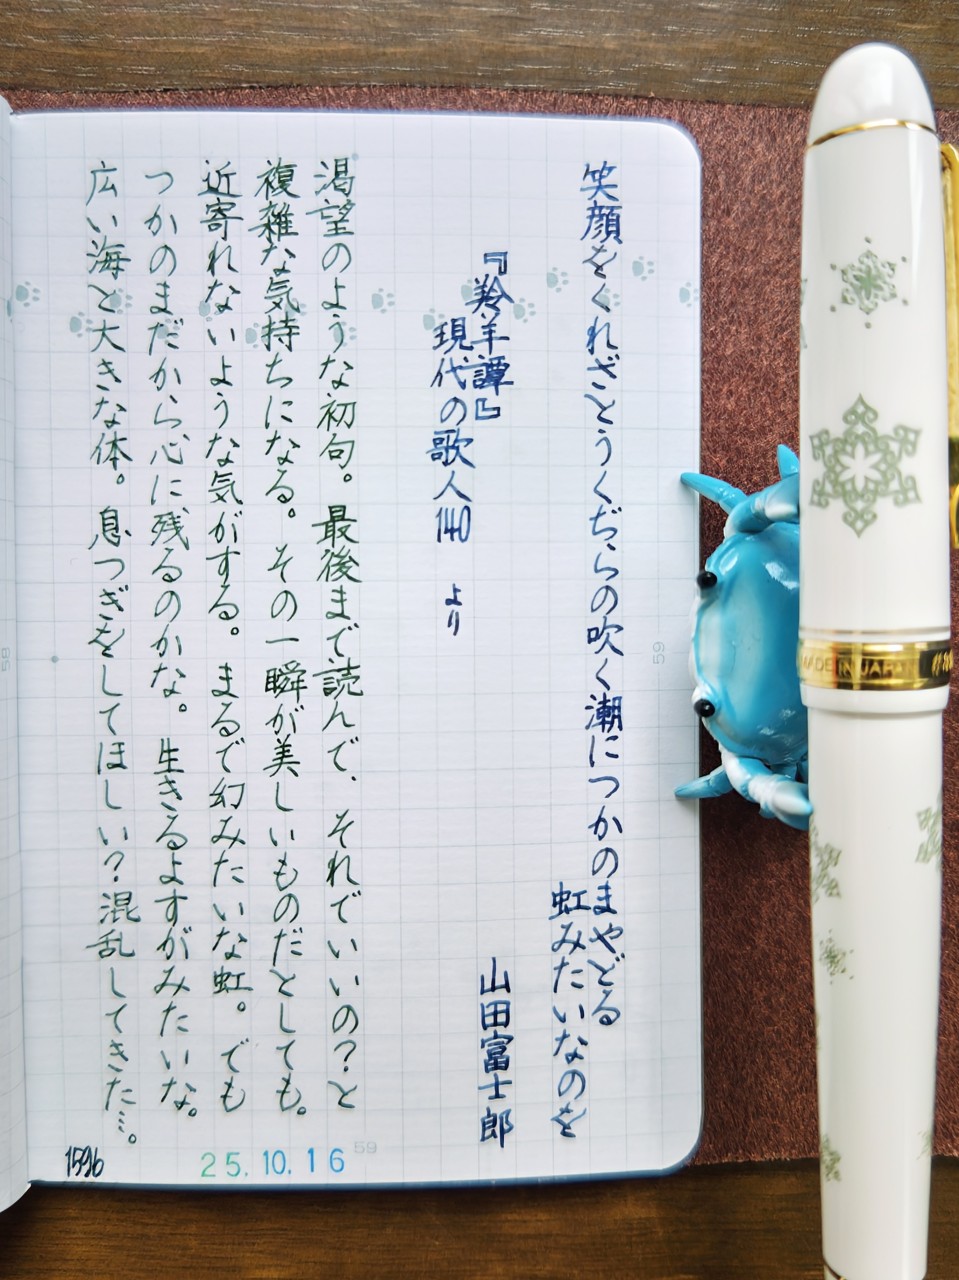 笑顔をくれざとうくぢらの吹く潮につかのまやどる
虹みたいなのを
『羚羊譚』
現代の歌人140 より
山田富士郎
渇望のような初句。最後まで読んで、それでいいの？と
複雑な気持ちになる。その一瞬が美しいものだとしても。
近寄れないような気がする。まるで幻みたいな虹。でも
つかのまだから心に残るのかな。生きるよすがみたいな。
広い海と大きな体。息つぎをしてほしい？混乱してきた…。
25.10.16
1596
59
59
58
MADE IN JAPAN